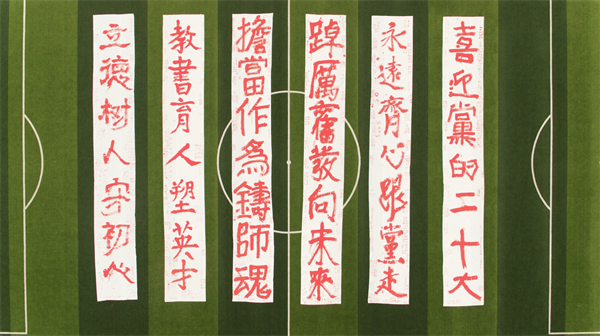 喜迎黨的二十大
永遠齊心跟黨走
踔厲奮發向未來
擔當作為鑄師魂
教書育人塑英才
立德树人守初心